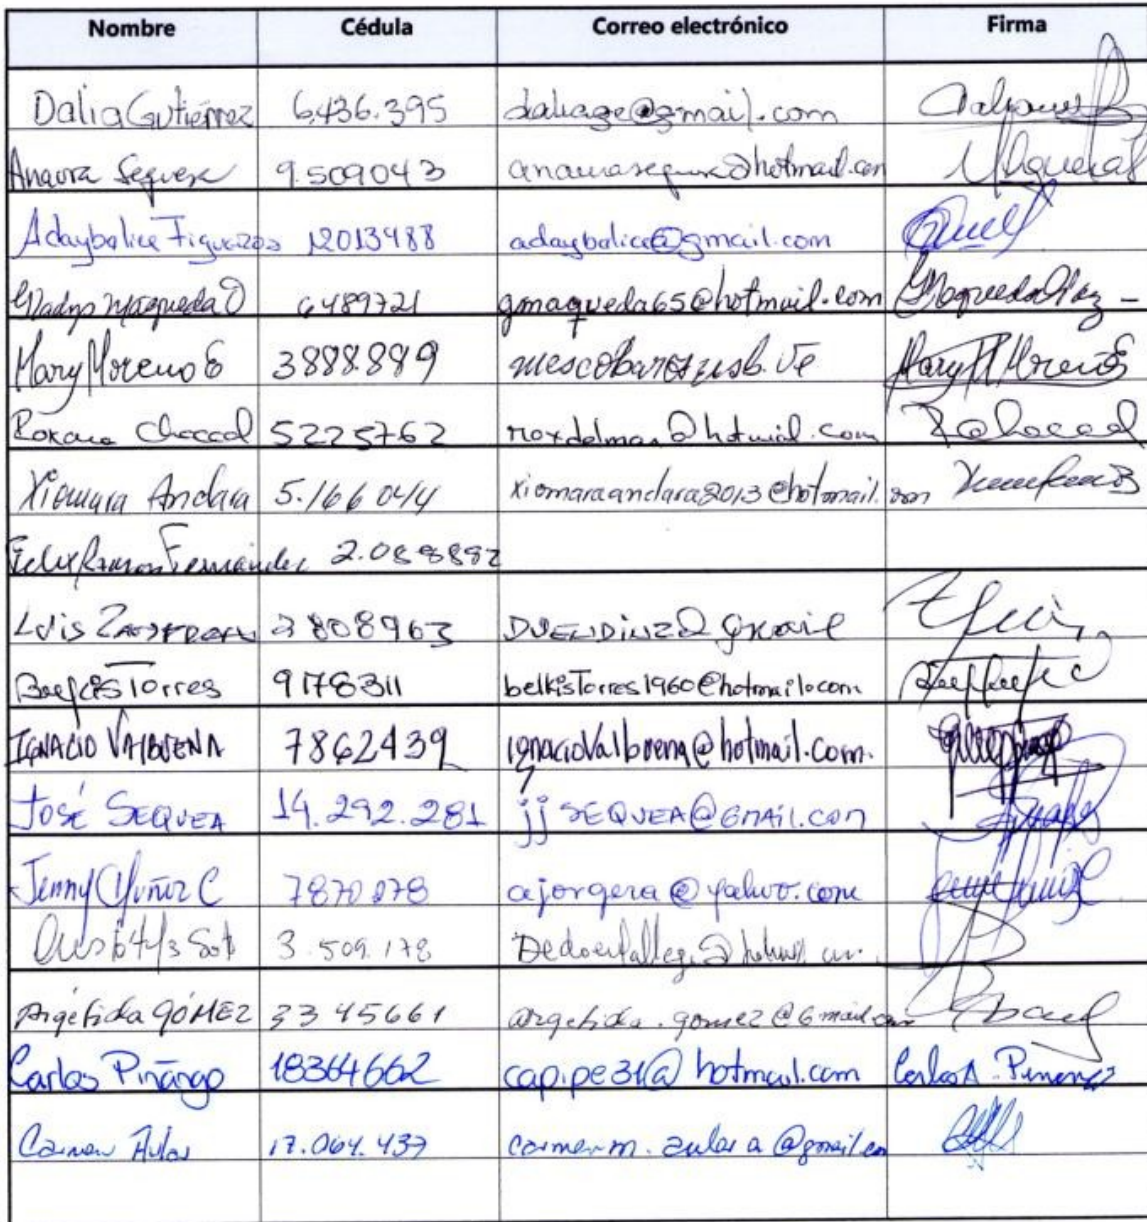 Nombre Cédula Correo electrónico Firma
Dalia Gutiérrez 6.436.395 daliage@gmail.com
Anaura 9.509043 @hotmail.com
Adaybalice Figueroa 12013488 adaybalice@gmail.com
Gladys Maqueda D 6489721 gmaqueda65@hotmail.com Maqueda Díaz
Mary Moreno E 3888889 mescobar@usb.ve Mary Moreno E
Roxana Chaccal 5225762 roxdalmar@hotmail.com
Xiomara Andara 5.166044 xiomaraandara2013@hotmail.com
Felix Ramon Fernández 2.088882
Luis 3808963 DUENDIN22@gmail
Belkis Torres 9178311 belkisTorres1960@hotmail.com
IGNACIO VALBUENA 7862439 ignacioValbuena@hotmail.com.
JOSÉ SEQUEA 14.292.281 jjSEQUEA@GMAIL.COM
Jenny Muñiz C 7870278 ajorgera@yahoo.com
3.509.178
Argelida GÓMEZ 3345661 argelida.gomez@Gmail.com
Carlos Piñango 18364662 capipe31@hotmail.com Carlos A.
Carmen Aular 17.064.437 carmenm.aular a @gmail.com